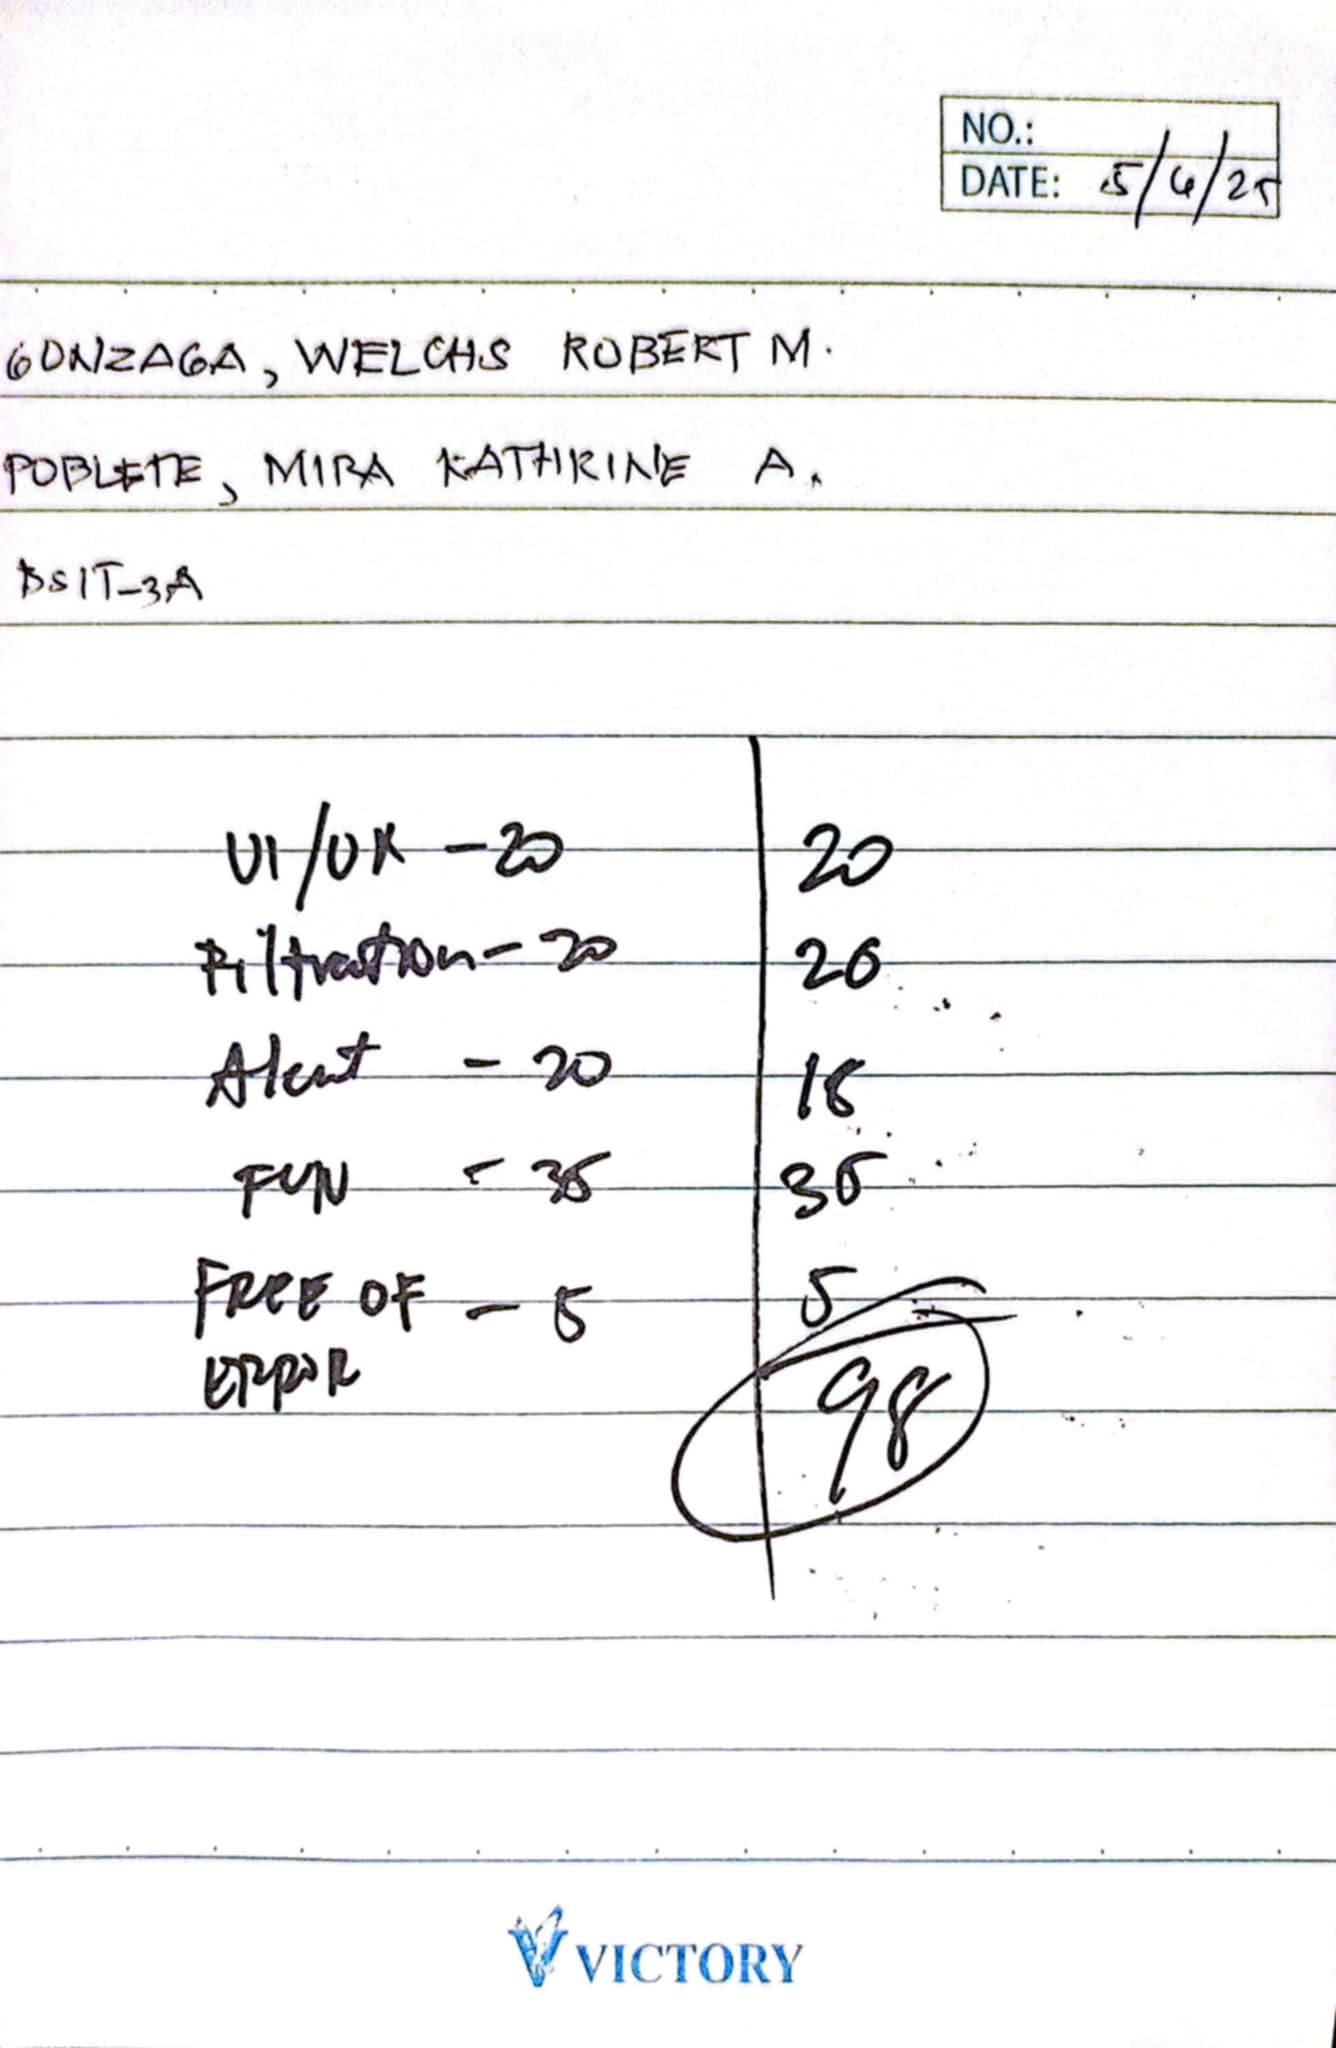 NO.:
DATE: 5/6/25
GONZAGA, WELCHS ROBERT M.
POBLETE, MIRA KATHRINE A.
BSIT-3A
UI/UX - 20 20
Filtration - 20 20
Alert - 20 18
FUN - 35 35
FREE OF - 5 5
ERROR
98
VICTORY